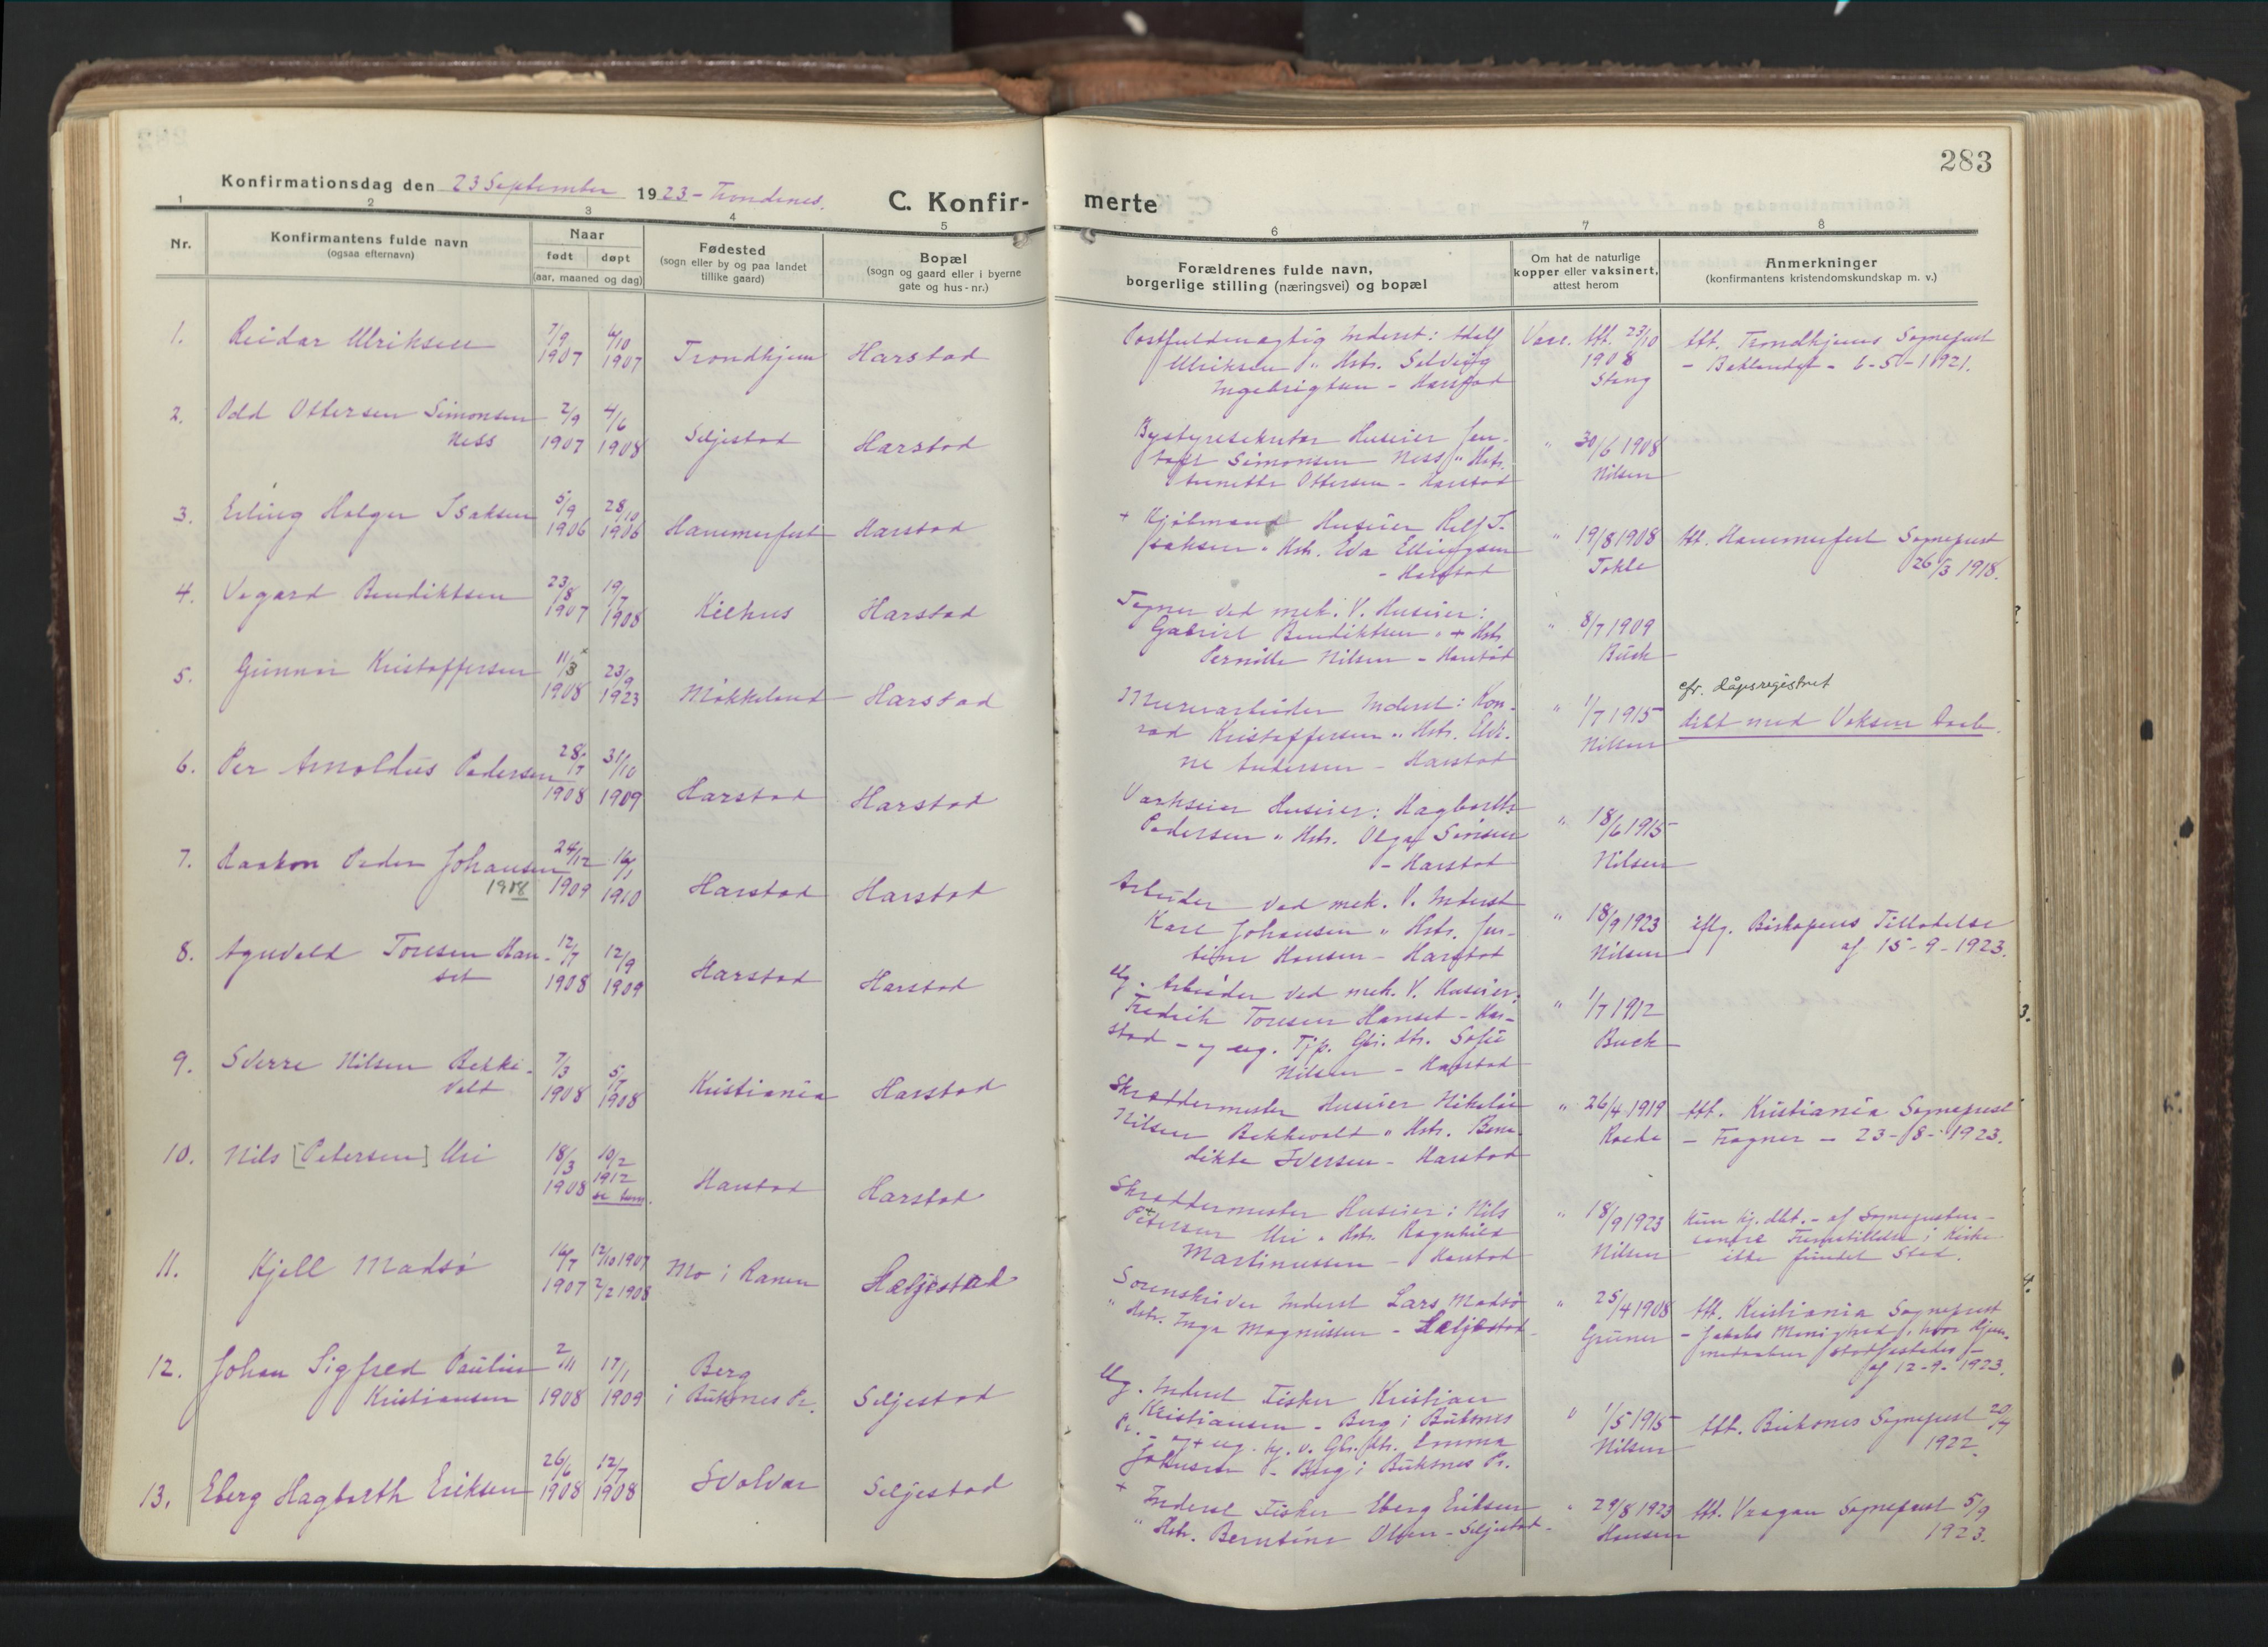 283
Konfirmationsdag den 23 September 1923 - Trondenes.
C. Konfir- merte
1 2 3 4 5 6 7 8
Nr.
Konfirmantens fulde navn
(ogsaa efternavn)
Naar
født døpt
(aar, maaned og dag)
Fødested
(sogn eller by og paa landet
tillike gaard)
Bopæl
(sogn og gaard eller i byerne
gate og hus-nr.)
Forældrenes fulde navn,
borgerlige stilling (næringsvei) og bopæl
Om hat de naturlige
kopper eller vaksinert,
attest herom
Anmerkninger
(konfirmantens kristendomskundskap m. v.)
1. Reidar Ulriksen 7/9 1907 6/10 1907 Trondhjem Harstad
Postfuldmægtig Inderst: Adolf
Ulriksen " Hstr. Solveig
Ingebrigtsen - Harstad
Vacc. Att. 23/10
1908
Stang
Att. Trondhjems Sognepræst
- Baklandet - 6-5-1921.
2. Odd Ottersen Simonsen
Ness
2/9 1907 4/6 1908 Seljestad Harstad
Bystyresekretær Huseier Jen-
toft Simonsen Ness " Hstr.
Anette Ottersen - Harstad
" 30/6 1908
Nilsen
3. Erling Holger Isaksen 5/9 1906 28/10 1906 Hammerfest Harstad
+ Kjølmand Huseier Rolf I.
Isaksen " Hstr. Eda Ellingsen
- Harstad
" 19/8 1908
Tokle
Att. Hammerfest Sognepræst
26/3 1918.
4. Vegard Bendiktsen 23/8 1907 19/7 1908 Kilhus Harstad
Tegner ved mek. V. Huseier:
Gabriel Bendiktsen " + Hstr.
Pernille Nilsen - Harstad
" 8/7 1909
Buck
5. Gunnar Kristoffersen 11/3 x 1908 23/9 1923 Møkkeland Harstad
Murerarbeider Inderst: Kon-
rad Kristoffersen " Hstr. Elvi-
ne Andersen - Harstad
" 1/7 1915
Nilsen
cfr. dåpsregistret
døbt med Voksen Daab.
6. Per Arnoldus Pedersen 28/7 1908 31/10 1909 Harstad Harstad
Verkseier Huseier: Hagbarth
Pedersen " Hstr. Olga Sørensen
- Harstad
" 18/6 1915
Nilsen
7. Haakon Peder Johansen 24/12 1909 16/1 1910 Harstad Harstad
1908
Arbeider ved mek. V. Inderst
Karl Johansen " Hstr. Jen-
sine Hansen - Harstad
" 18/9 1923
Nilsen
iflg. Biskopens Tilladelse
af 15-9-1923.
8. Agnvald Toresen Han-
set
12/7 1908 12/9 1909 Harstad Harstad
Ug. Arbeider ved mek. V. Huseier:
Fredrik Toresen Hanset - Har-
stad - og ug. Tjp. Gbr. dtr. Sofie
Nilsen - Harstad
" 1/7 1912
Buck
9. Sverre Nilsen Bekke-
vold
7/3 1908 5/7 1908 Kristiania Harstad
Skræddermester Huseier Nikolai
Nilsen Bekkevold " Hstr. Bene-
dikte Iversen - Harstad
" 26/4 1919
Roede
Att. Kristiania Sognepræst
- Frogner - 23-8-1923.
10. Nils [Petersen] Uri 18/3 1908 10/2 1912 Harstad Harstad
Skræddermester Huseier: Nils
Petersen Uri " Hstr. Ragnhild
Martinussen - Harstad
" 18/9 1923
Nilsen
Kun hj. dbt. - af Sognepresten -
Fremstillelse i Kirke
ikke fundet Sted.
11. Kjell Madsø 16/7 1907 12/10 1907 2/2 1908 Mo i Ranen Seljestad
Sorenskriver Inderst Lars Madsø
" Hstr. Inga Magnussen - Seljestad
" 25/4 1908
Grüner
Att. Kristiania Sognepræst
- Jakobs Menighed, hvor Hjem-
medaaben stadfæstedes -
af 12-9-1923.
12. Johan Sigfred Paulin
Kristiansen
2/11 1908 17/1 1909 Berg
i Buksnes Pr. Seljestad
Ug. Inderst Fisker Kristian
Kristiansen - Berg i Buksnes
Pr. - og + ug. hj. v. Gbr. dtr. Emma
Johnsen - Berg i Buksnes Pr.
" 1/5 1915
Nilsen
Att. Buksnes Sognepræst 20/7
1922
13. Eberg Hagbarth Eriksen 26/6 1908 12/7 1908 Svolvær Seljestad
+ Inderst Fisker Eberg Eriksen
" Hstr. Berntine Olsen - Seljestad -
" 29/8 1923
Hansen
Att. Vaagan Sognepræst 5/9
1923.